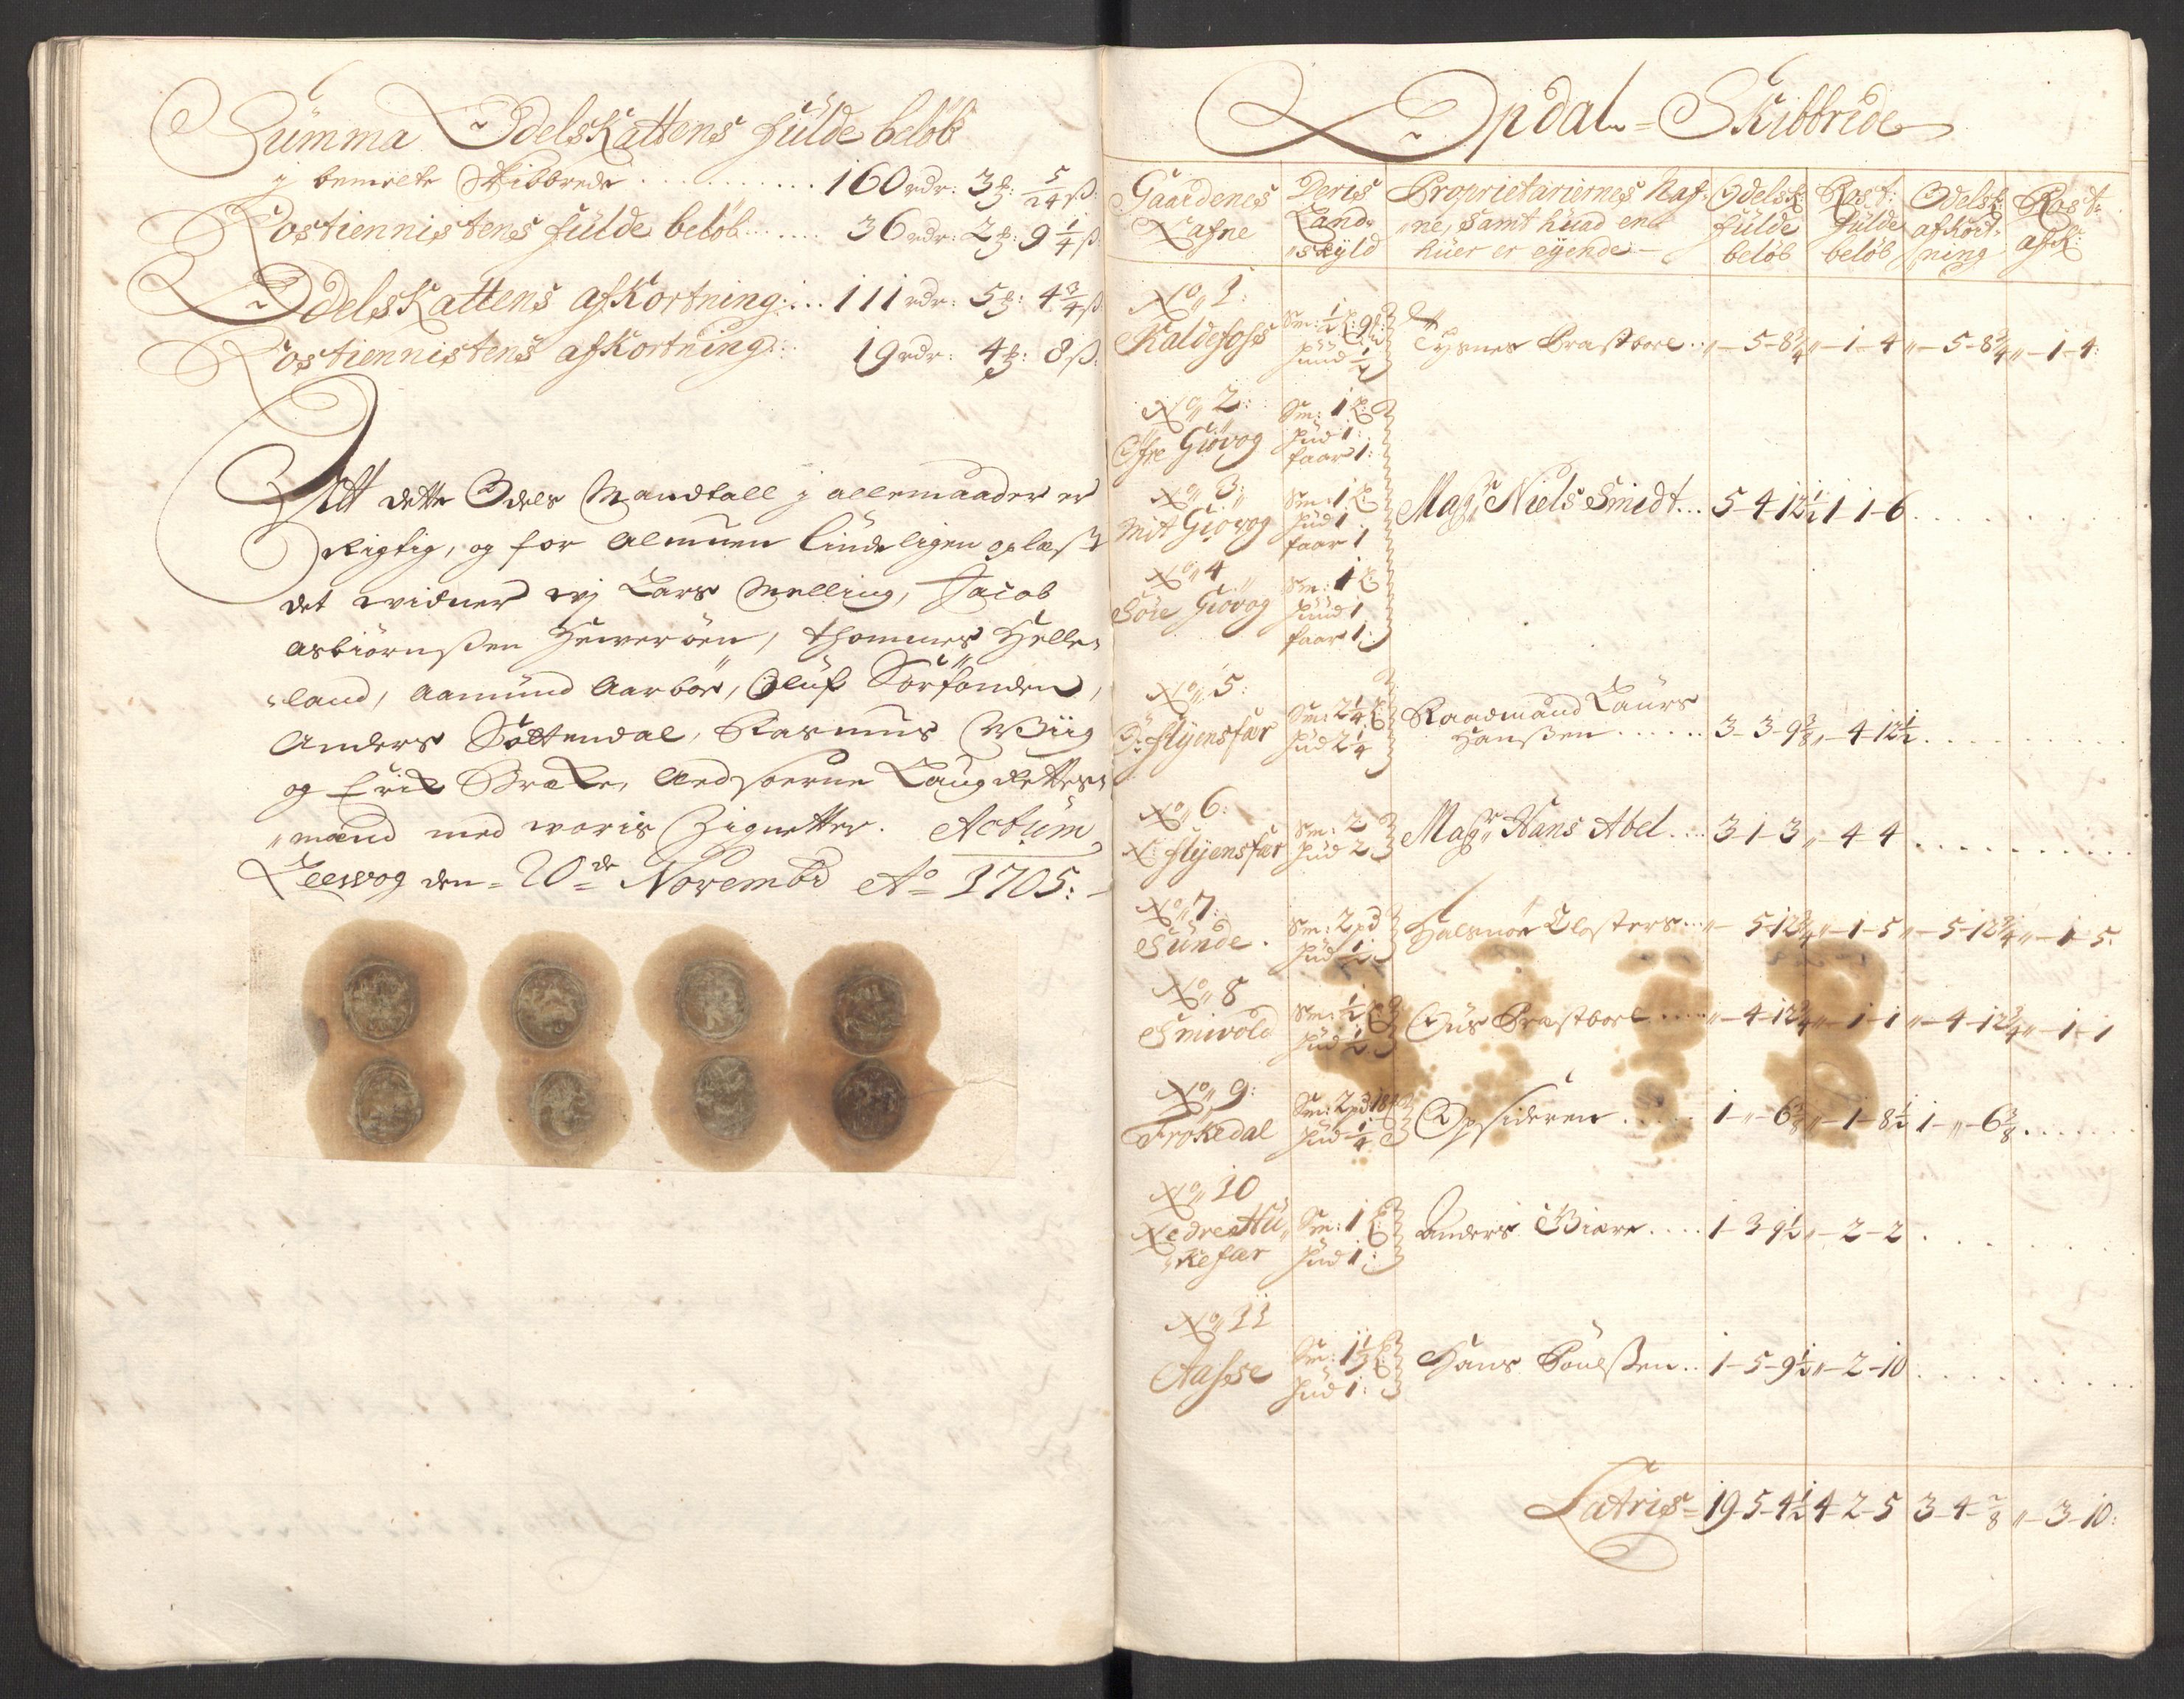 Summa Odelskattens fulde beløb
j bemelte Skibbrede ........... 160 rdr: 3 ℔: 5/24 ß:
Rostiennistens fulde beløb ...... 36 rdr: 2 ℔: 9 1/4 ß
Odelskattens afkortning: ... 111 rdr: 5 ℔: 4 3/4 ß
Rostiennistens afkortning: 19 rdr: 4 ℔: 8 ß:
Att dette Odels Mandtall j allemaader er
Rigtig, og for Almuen liudeligen oplæst
det vidner vj Lars Melling, Jacob
Asbiørnßen Hewerøen, Thommes Helle-
land, Aamund Aarbøe, Oluf Sørfonden,
Anders Døttendal, Rasmus Wiig
og Erik Bræke, Eedsorne Laugrettes
mænd med woris Zignetter. Actum
Leewog den 20de Novembr Ao 1705:
Opdal Skibbrede
Gaardenes Nafne
Deris Land-skyld
Proprietariernes Naf-ne, samt huad en huer er eyende
Odelsk: fulde beløb
Rost: fulde beløb
Odelsk: afkort-ning
Rost: afk:
No 1:
Kaldefoss Sm: 1/2 L: 9 ℔: Hud 1/2 Tysnes Præstboel .. „-5-8 3/4 „-1-4 „-5-8 3/4 „-1-4:
No 2:
Øfre Giøvog Sm: 1 L: Hud 1: faar 1:
No 3:
Mit Giøvog Sm: 1 L: Hud 1 faar 1 Magr Niels Smidt... 5-4-12 1/2 1-1-6
No 4
Søre Giøvog Sm: 1 L: Hud 1 faar 1:
No 5:
Ø: Flyensfær Sm: 2 1/4 L: Hud 2 1/4 Raadmand Laurs Hanßen ...... 3-3-9 3/8 „-4-12 1/2
No 6:
N: Flyensfær Sm: 2 Hud 2 Magr Hans Abel .... 3-1-3 „-4-4
No 7:
Sunde. Sm: 2 pd Hud 1/2 Halsnøe Closters ... „-5-12 3/4 „-1-5 „-5-12 3/4 „-1-5:
No 8
Snivold Sm: 1/2 L: Hud 1/2 Ous Præstboel .... „-4-12 3/4 „-1-1 „-4-12 3/4 „-1-1
No 9:
Frøkedal Sm: 2 pd 18 Hud 1/4 Opsideren ..... 1-„-6 3/8 „-1-8 1/2 1-„-6 3/8
No 10
Nedre Hu-kefær Sm: 1 L: Hud 1: Anders Biære .... 1-3-9 1/2 „-2-2
No 11
Aasse Sm: 1 1/3 L: Hud 1: Hans Poulßen .. 1-5-9 1/2 „-2-10
Latris 19-5-4 1/2 4-2-5 3-4-7/8 „-3-10: